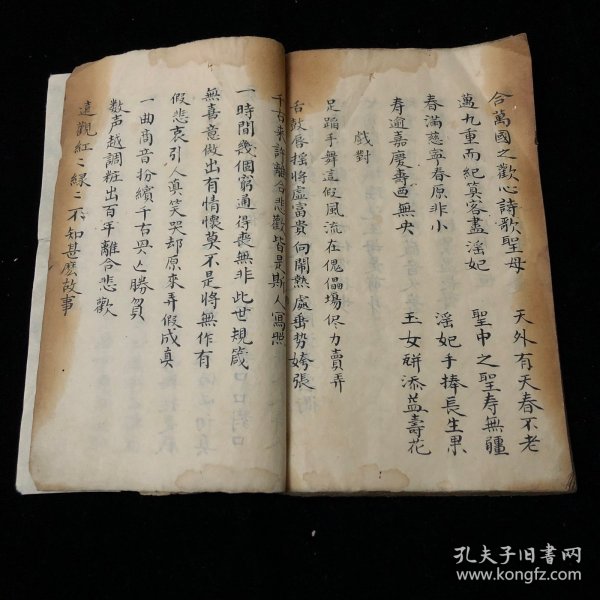 合萬國之歡心詩歌聖母
天外有天春不老
萬九重而紀筭客盡瑤妃
聖中之聖寿無疆
春滿慈寧春原非小
瑤妃手捧長生果
寿逾嘉慶壽更無央
王女缾添益壽花
戲對
足蹈手舞這假風流在傀儡場侭力賣弄
舌鼓唇搖將虛富貴向鬧熱處垂势姱張
千古来許離合悲歡皆是斯人寫照
一時間幾個窮通得喪無非此世規箴
無喜意做出有情懷莫不是將無作有
假悲哀引人真笑哭却原來弄假成真
一曲高音扮績千古興亡勝負
數声越調粧出百年離合悲歡
遠觀紅〻緑〻不知甚麽故事
孔夫子旧書网
www.kongfz.com